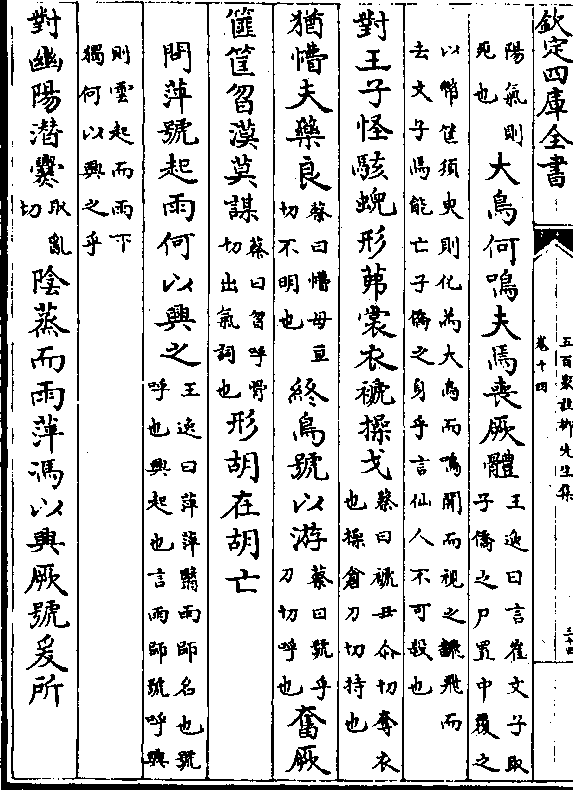 欽定四庫全書
五百家註柳先生集
卷十四
三十四
陽氣則
死也
大鳥何鳴夫焉喪厥體
王逸曰言崔文子取
子僑之尸置中覆之
以幣筐須臾則化為大鳥而鳴開而視之飜飛而
去文子焉能亡子僑之身乎言仙人不可殺也
對王子怪駭蜺形茀裳衣褫操戈
蔡曰褫丑介切奪衣
也操倉刀切持也
猶懵夫藥良
蔡曰懵母亘
切不明也
終鳥號以游
蔡曰號乎
刀切呼也
奮厥
篚筐曶漠莫謀
蔡曰曶呼骨
切出氣詞也
形胡在胡亡
問萍號起雨何以興之
王逸曰萍萍翳雨師名也號
呼也興起也言雨師號呼興
則雲起而雨下
獨何以興之乎
對幽陽潛爨
取亂
切
陰蒸而雨萍馮以興厥號爰所